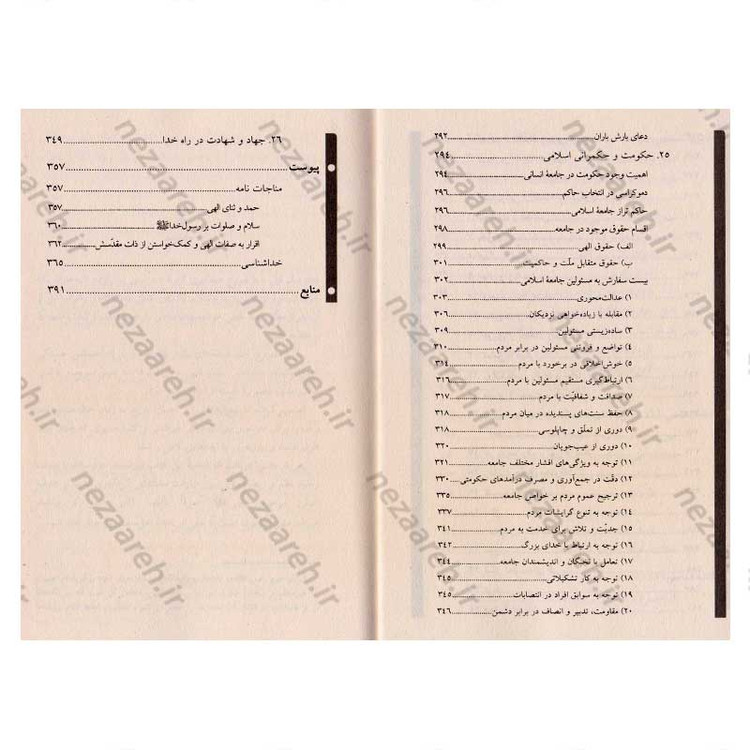 دعای بارش باران ۲۹۲
۲۵. حکومت و حکمرانی اسلامی ۲۹۴
اهمیت وجود حکومت در جامعهٔ انسانی ۲۹۴
دموکراسی در انتخاب حاکم ۲۹۶
حاکم تراز جامعهٔ اسلامی ۲۹۶
اقسام حقوق موجود در جامعه ۲۹۸
الف) حقوق الهی ۲۹۹
ب) حقوق متقابل ملّت و حاکمیت ۳۰۱
بیست سفارش به مسئولین جامعهٔ اسلامی ۳۰۲
۱) عدالت‌محوری ۳۰۳
۲) مقابله با زیاده‌خواهی نزدیکان ۳۰۶
۳) ساده‌زیستی مسئولین ۳۰۹
۴) تواضع و فروتنی مسئولین در برابر مردم ۳۱۰
۵) خوش‌اخلاقی در برخورد با مردم ۳۱۴
۶) ارتباط‌گیری مستقیم مسئولین با مردم ۳۱۶
۷) صداقت و شفافیّت با مردم ۳۱۷
۸) حفظ سنت‌های پسندیده در میان مردم ۳۱۸
۹) دوری از تملّق و چاپلوسی ۳۱۸
۱۰) دوری از عیب‌جویان ۳۲۰
۱۱) توجه به ویژگی‌های اقشار مختلف جامعه ۳۲۱
۱۲) دقّت در جمع‌آوری و مصرف درآمدهای حکومتی ۳۳۰
۱۳) ترجیح عموم مردم بر خواص جامعه ۳۳۵
۱۴) توجه به تنوع گرایشات مردم ۳۳۷
۱۵) جدیّت و تلاش برای خدمت به مردم ۳۴۱
۱۶) توجه به ارتباط با خدای بزرگ ۳۴۲
۱۷) تعامل با نخبگان و اندیشمندان جامعه ۳۴۴
۱۸) توجه به کار تشکیلاتی ۳۴۵
۱۹) توجه به سوابق افراد در انتصابات ۳۴۵
۲۰) مقاومت، تدبیر و انصاف در برابر دشمن ۳۴۶
۲۶. جهاد و شهادت در راه خدا ۳۴۹
پیوست ۳۵۷
مناجات نامه ۳۵۷
حمد و ثنای الهی ۳۵۷
سلام و صلوات بر رسول خدا ﷺ ۳۶۰
اقرار به صفات الهی و کمک‌خواستن از ذات مقدّسش ۳۶۲
خداشناسی ۳۶۵
منابع ۳۹۱
nezaareh.ir